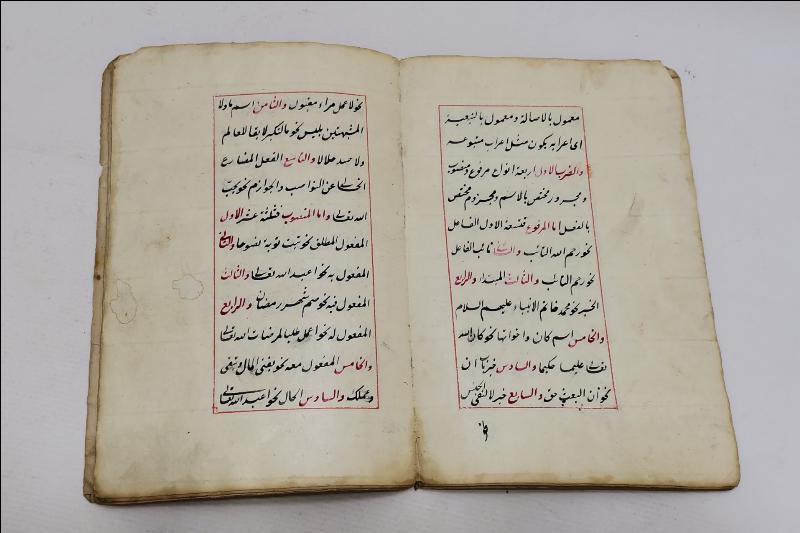 معمول بالاصالة ومعمول بالتبعية
اى اعرابه يكون مثل اعراب متبوعه
والضرب الاول اربعة انواع مرفوع ومنصوب
ومجرور مختص بالاسم ومجزوم مختص
بالفعل اما المرفوع فتسعة الاول الفاعل
نحو رحم الله التائب والثانى نائب الفاعل
نحو رحم التائب والثالث المبتدا والرابع
الخبر نحو محمد خاتم الانبياء عليهم السلام
والخامس اسم كان واخواتها نحو كان الله
تعالى عليما حكيما والسادس خبر باب ان
نحو ان البعث حق والسابع خبر لا لنفى الجنس
نحو لا عمل مراء مقبول والثامن اسم ما ولا
المشبهتين بليس نحو ما التكبر لايقا للعالم
ولا حسد حلالا والتاسع الفعل المضارع
الخالى عن النواصب والجوازم نحو يحب
الله تعالى واما المنصوب فثلثة عشر الاول
المفعول المطلق نحو تبت توبة نصوحا والثانى
المفعول به نحو اعبد الله تعالى والثالث
المفعول فيه نحو صم شهر رمضان والرابع
المفعول له نحو اعمل طلبا لمرضات الله تعالى
والخامس المفعول معه نحو يفنى المال وتبقى
وعملك والسادس الحال نحو اعبد الله تعالى